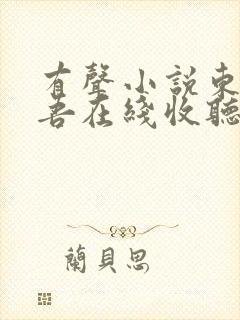 有聲小説東
吾在綫收聽
蘭貝思